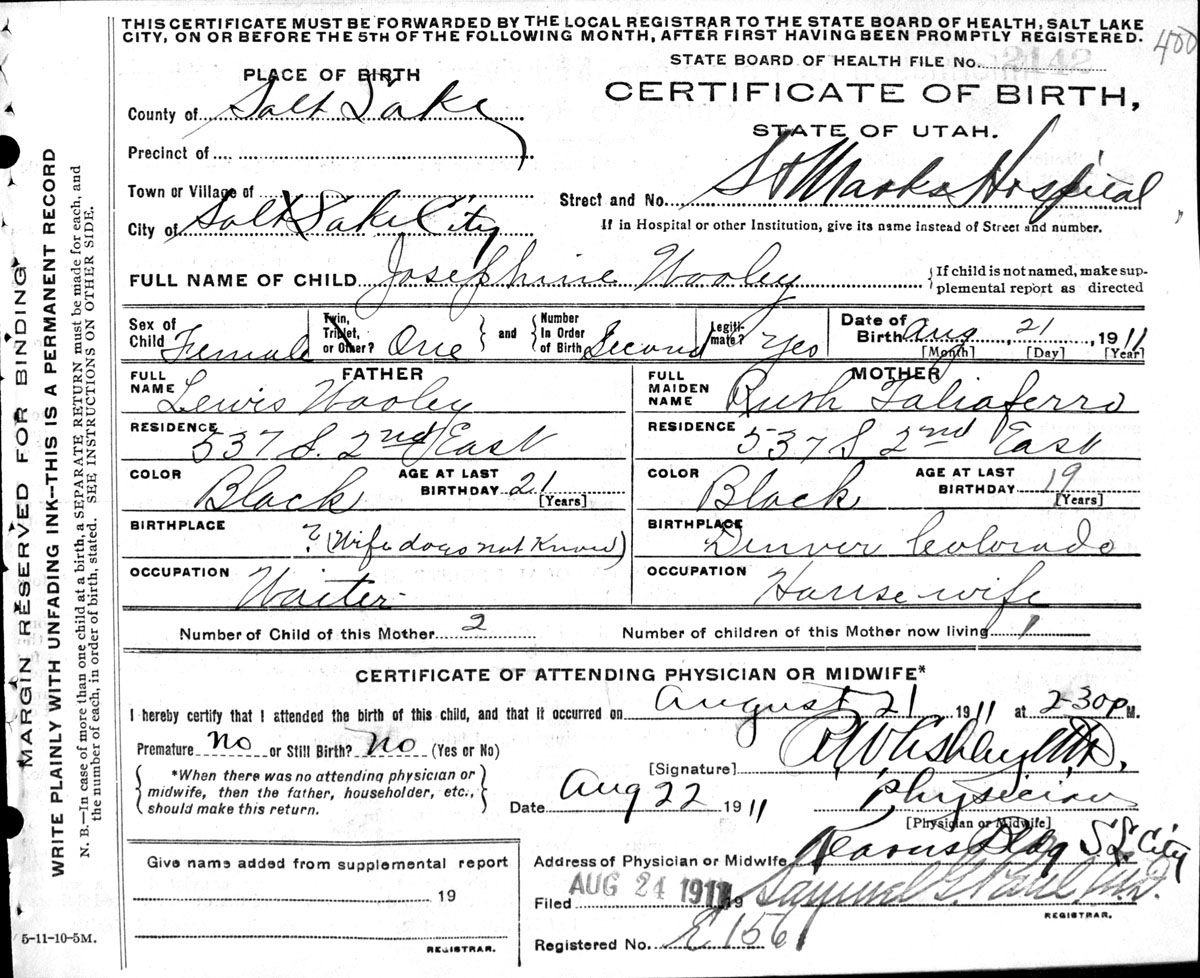 THIS CERTIFICATE MUST BE FORWARDED BY THE LOCAL REGISTRAR TO THE STATE BOARD OF HEALTH, SALT LAKE
CITY, ON OR BEFORE THE 5TH OF THE FOLLOWING MONTH, AFTER FIRST HAVING BEEN PROMPTLY REGISTERED.
400
STATE BOARD OF HEALTH FILE No. 2142
PLACE OF BIRTH
CERTIFICATE OF BIRTH,
STATE OF UTAH.
County of Salt Lake
Precinct of
Town or Village of
City of Salt Lake City
Street and No. St Marks Hospital
If in Hospital or other Institution, give its name instead of Street and number.
FULL NAME OF CHILD Josephine Wooley
{If child is not named, make sup-
plemental report as directed
Sex of Child Female
Twin, Triplet, or Other? One
and
Number In Order of Birth Second
Legiti-mate? Yes
Date of Birth Aug 21, 1911
[Month] [Day] [Year]
FATHER
FULL NAME Lewis Wooley
RESIDENCE 537 S. 2nd East
COLOR Black
AGE AT LAST BIRTHDAY 21 [Years]
BIRTHPLACE ? (Wife does not Know)
OCCUPATION Waiter
MOTHER
FULL MAIDEN NAME Ruth Taliaferro
RESIDENCE 537 S 2nd East
COLOR Black
AGE AT LAST BIRTHDAY 19 [Years]
BIRTHPLACE Denver Colorado
OCCUPATION Housewife
Number of Child of this Mother 2
Number of children of this Mother now living 1
CERTIFICATE OF ATTENDING PHYSICIAN OR MIDWIFE*
I hereby certify that I attended the birth of this child, and that it occurred on August 21 1911 at 2-30 P M.
Premature No or Still Birth? No (Yes or No)
{*When there was no attending physician or
midwife, then the father, householder, etc.,
should make this return.}
[Signature] M.D.
Date Aug 22 1911
Physician
[Physician or Midwife]
Address of Physician or Midwife Kearns Bldg S L City
Give name added from supplemental report
19
REGISTRAR.
Filed AUG 24 1911 19 Samuel G. Paul M.D.
REGISTRAR.
Registered No. E 156
5-11-10-5M.
MARGIN RESERVED FOR BINDING
WRITE PLAINLY WITH UNFADING INK—THIS IS A PERMANENT RECORD
N. B.—In case of more than one child at a birth, a SEPARATE RETURN must be made for each, and
the number of each, in order of birth, stated. SEE INSTRUCTIONS ON OTHER SIDE.